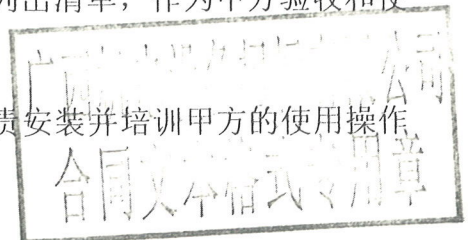 列出清单，作为甲方验收和使
广西
公司
责安装并培训甲方的使用操作
合同文本格式专用章